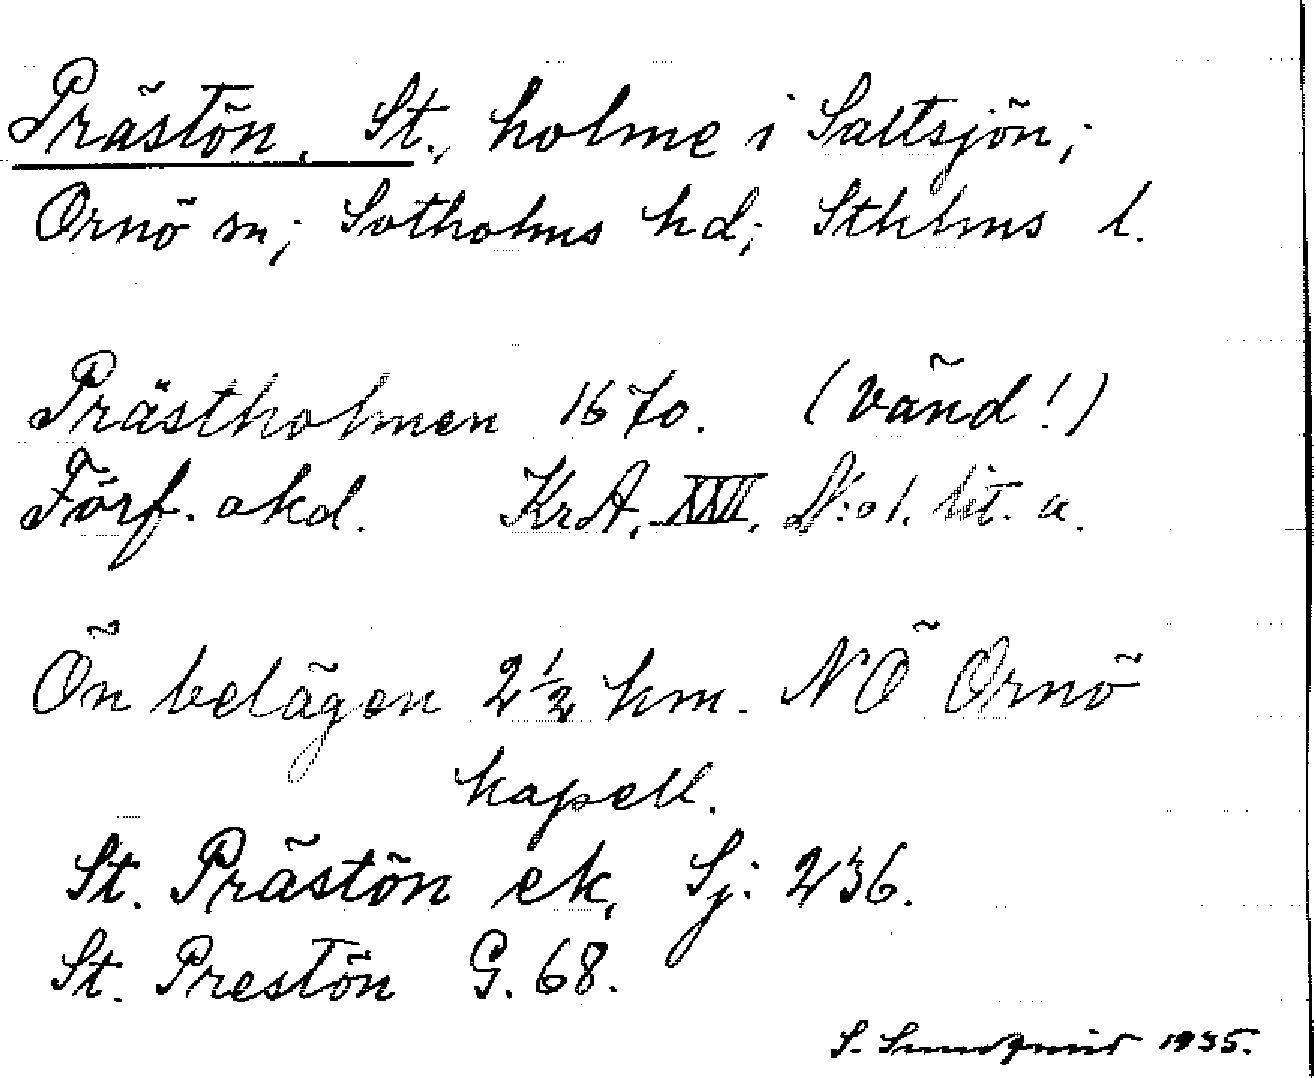 Prästön, St., holme i Saltsjön;
Ornö sn; Sotholms hd; Sthlms l.
Prästholmen 1670. (vänd!)
Förf. akd. KrA. XXVI. N:o 1. lit. a.
Ön belägen 2 1/2 km. NÖ Ornö
kapell.
St. Prästön ek. Sj: 236.
St. Prestön G. 68.
S. Sundqvist 1935.